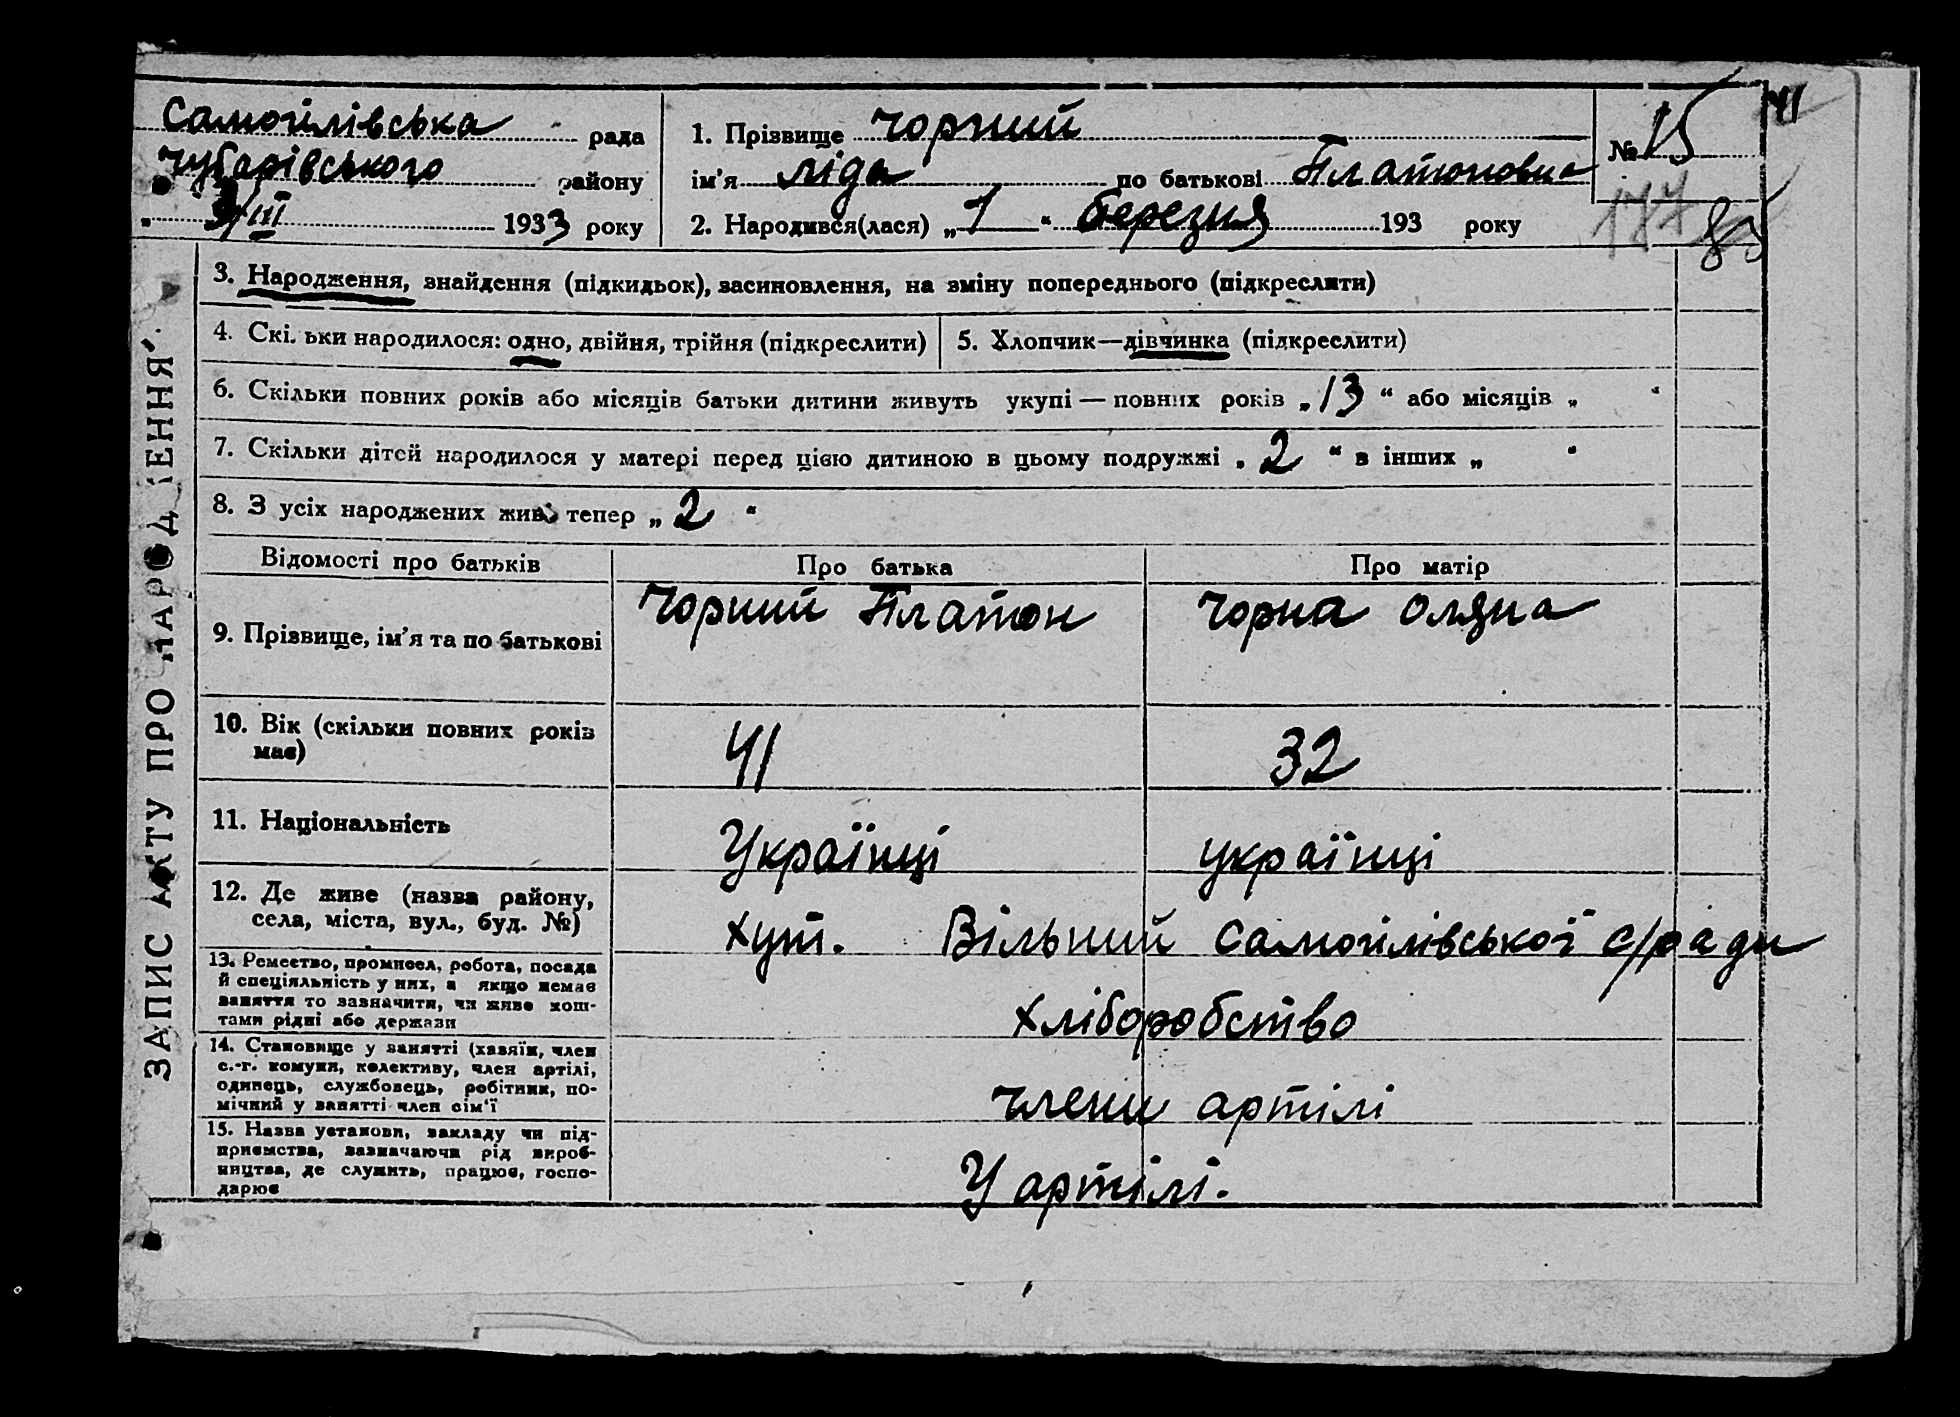 Самойлівська рада
Чубарівського району
„ 3/III 1933 року
1. Прізвище Чорний
ім'я Ліда по батькові Платоновна
2. Народився(лася) „1“ березня 193 року
№ 15
41
177
85
ЗАПИС АКТУ ПРО „НАРОДЖЕННЯ“
3. Народження, знайдення (підкидьок), засиновлення, на зміну попереднього (підкреслити)
4. Скільки народилося: одно, двійня, трійня (підкреслити)
5. Хлопчик—дівчинка (підкреслити)
6. Скільки повних років або місяців батьки дитини живуть укупі — повних років „13“ або місяців „ “
7. Скільки дітей народилося у матері перед цією дитиною в цьому подружжі „2“ в інших „ “
8. З усіх народжених живі тепер „2“
Відомості про батьків Про батька Про матір
9. Прізвище, ім'я та по батькові Чорний Платон Чорна Оляна
10. Вік (скільки повних років
має) 41 32
11. Національність Українці українці
12. Де живе (назва району,
села, міста, вул., буд. №) хут. Вільний Самойлівської с/ради
13. Ремество, промисел, робота, посада
й спеціяльність у них, а якщо немає
заняття то зазначити, чи живе кош-
тами рідні або держави
Хліборобство
14. Становище у занятті (хазяїн, член
с.-г. комуни, колективу, член артілі,
одинець, службовець, робітник, по-
мічний у занятті член сім'ї
члени артілі
15. Назва установи, закладу чи під-
приємства, зазначаючи рід вироб-
ництва, де служить, працює, госпо-
дарює
У артілі.